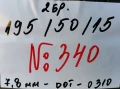 2 бр.
195/50/15
№ 340
7,8 мм - DOT - 0310